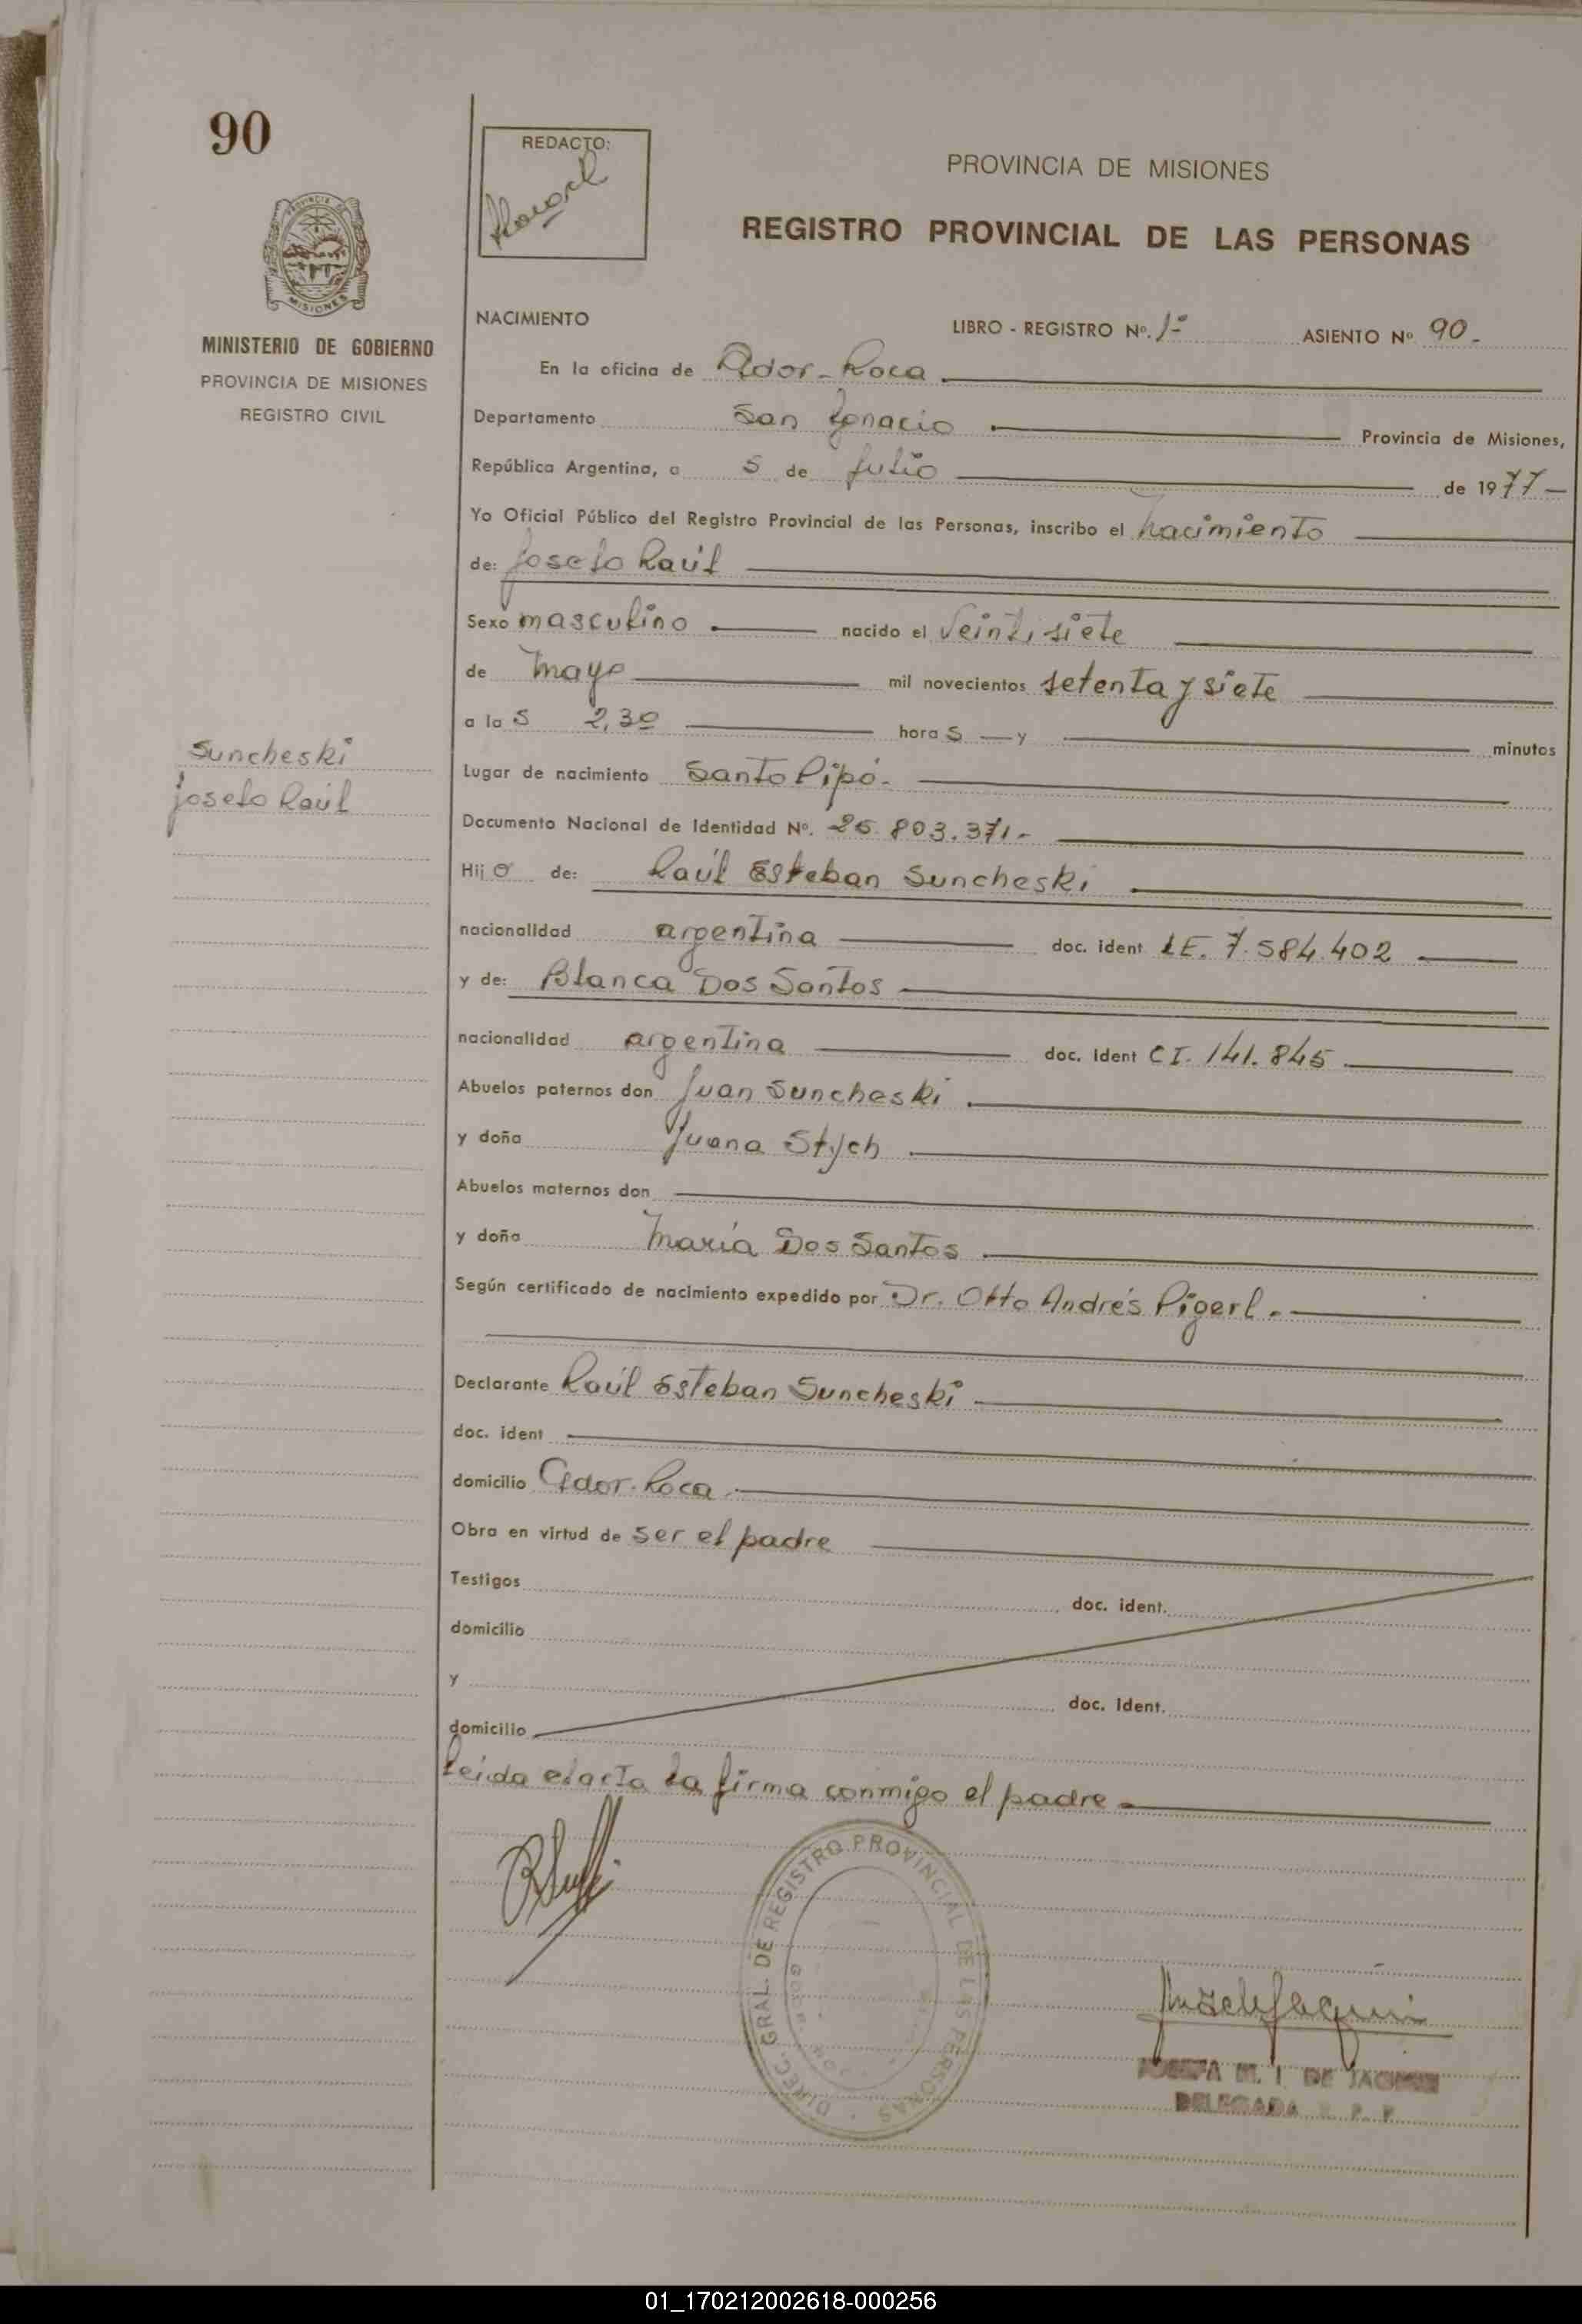 90
REDACTO:
PROVINCIA DE MISIONES
REGISTRO PROVINCIAL DE LAS PERSONAS
PROVINCIA DE
MISIONES
MINISTERIO DE GOBIERNO
PROVINCIA DE MISIONES
REGISTRO CIVIL
NACIMIENTO LIBRO - REGISTRO Nº. 1º ASIENTO Nº 90-
En la oficina de Gdor-Roca
Departamento San Ignacio Provincia de Misiones,
República Argentina, a 5 de julio de 1977-
Yo Oficial Público del Registro Provincial de las Personas, inscribo el nacimiento
de: Joselo Raúl
Sexo masculino nacido el Veintisiete
de mayo mil novecientos setenta y siete
a las 2,30 horas — y minutos
Suncheski
Joselo Raúl
Lugar de nacimiento Santo Pipó-
Documento Nacional de Identidad Nº. 25.803.371-
Hijo de: Raúl Esteban Suncheski
nacionalidad argentina doc. ident LE. 7.584.402
y de: Blanca Dos Santos
nacionalidad argentina doc. ident CI. 141.845
Abuelos paternos don Juan Suncheski
y doña Juana
Abuelos maternos don
y doña María Dos Santos
Según certificado de nacimiento expedido por Dr. Otto Andrés Pigerl.-
Declarante Raúl Esteban Suncheski
doc. ident
domicilio Gdor. Roca
Obra en virtud de ser el padre
Testigos doc. ident.
domicilio
y doc. ident.
domicilio
Leida el acta la firma conmigo el padre-
DIREC. GRAL. DE REGISTRO PROVINCIAL DE LAS PERSONAS
JOSEFA M. I. DE
DELEGADA R. P. P.
01_170212002618-000256